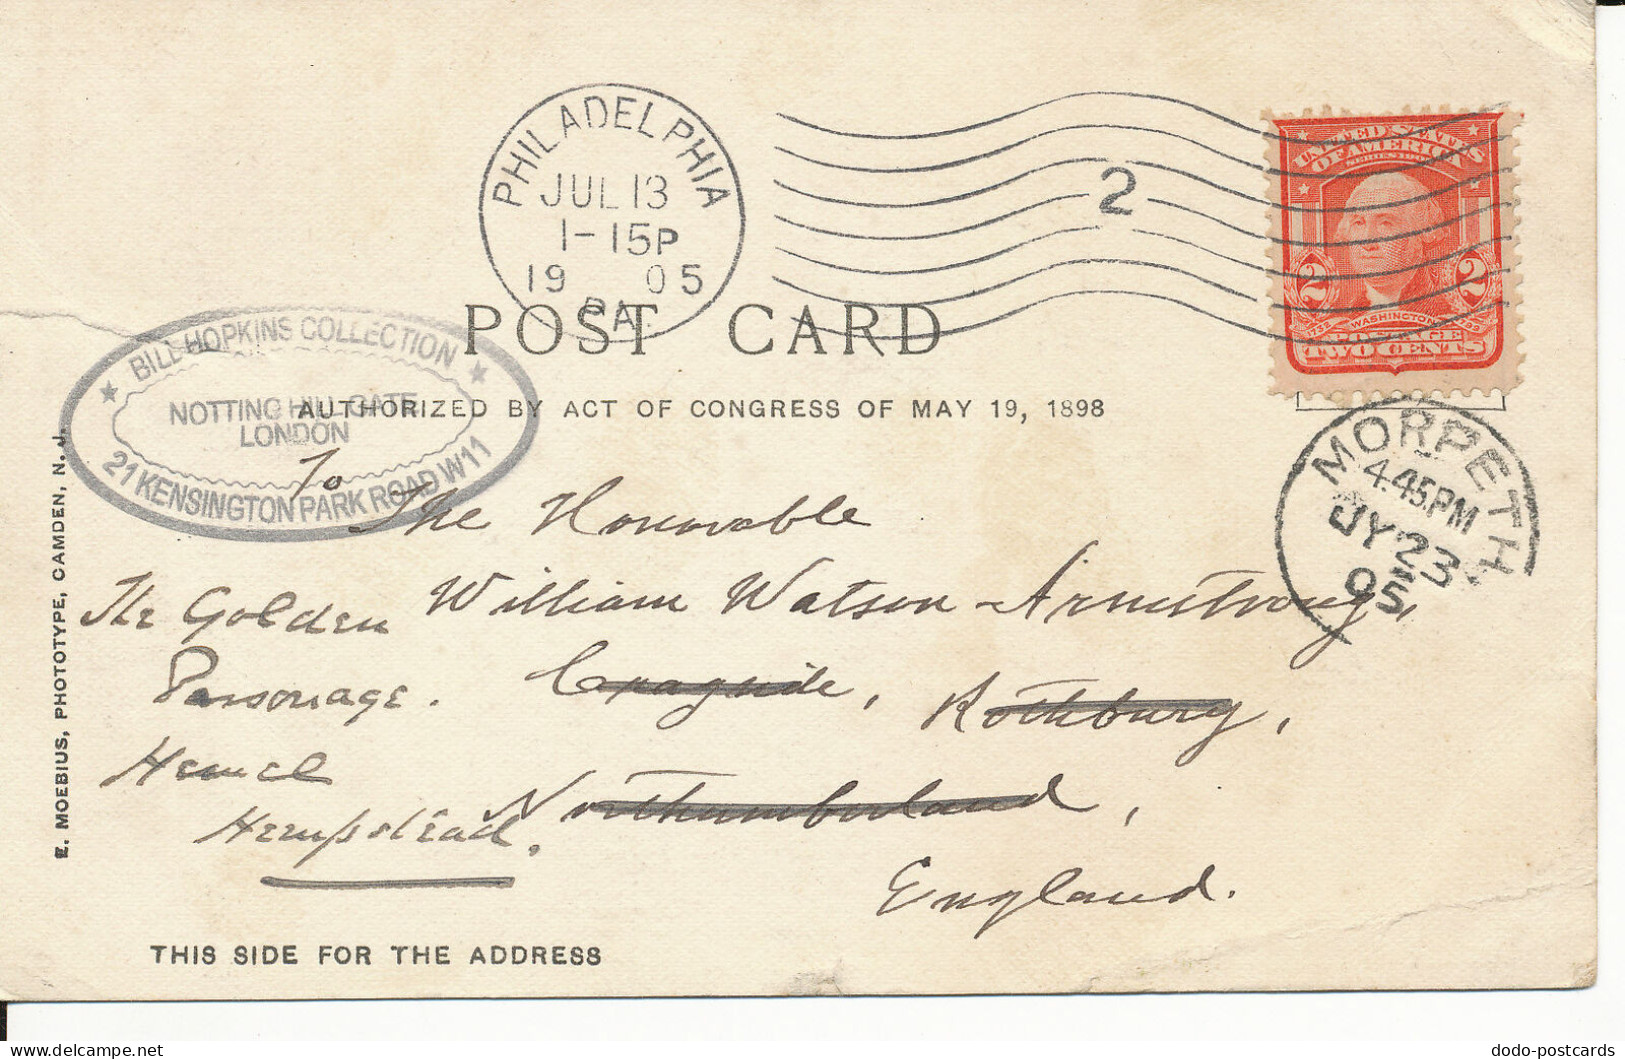 PHILADELPHIA
JUL 13
1-15P
19 05
PA
2
UNITED STATES
OF AMERICA
2 2
1732 WASHINGTON 1799
POSTAGE
TWO CENTS
POST CARD
AUTHORIZED BY ACT OF CONGRESS OF MAY 19, 1898
BILL HOPKINS COLLECTION
NOTTING HILL GATE
LONDON
21 KENSINGTON PARK ROAD W11
MORPETH
4.45PM
JY 23
05
To
The Honorable
William Watson-Armstrong,
Cragside, Rothbury,
Northumberland,
England.
The Golden
Parsonage.
Hemel
Hempstead.
E. MOEBIUS, PHOTOTYPE, CAMDEN, N. J.
THIS SIDE FOR THE ADDRESS
dodo-postcards